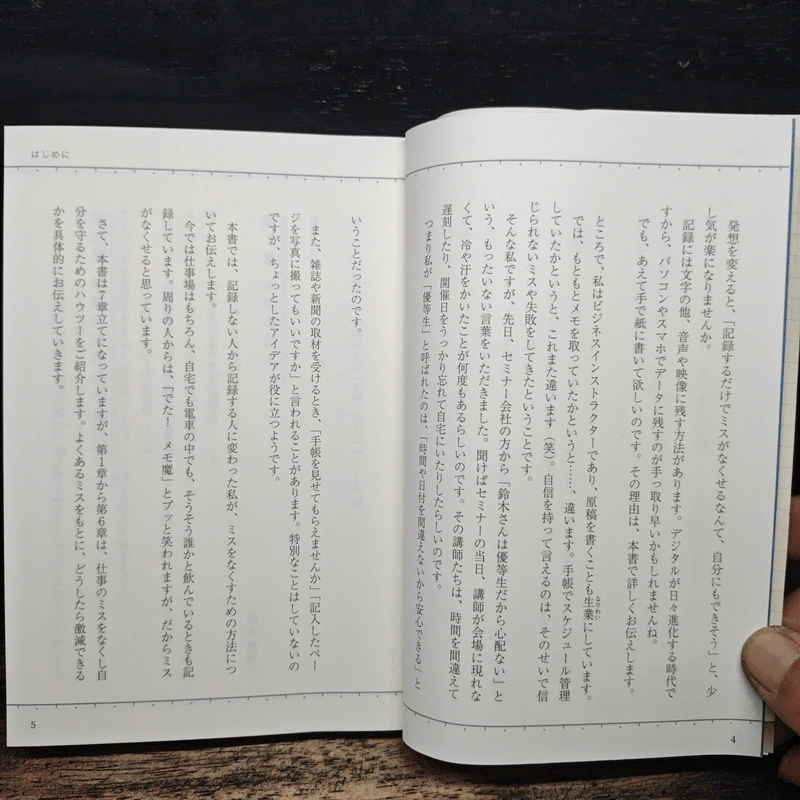 発想を変えると、「記録するだけでミスがなくせるなんて、自分にもできそう」と、少
し気が楽になりませんか。
記録には文字の他、音声や映像に残す方法があります。デジタルが日々進化する時代で
すから、パソコンやスマホでデータに残すのが手っ取り早いかもしれませんね。
でも、あえて手で紙に書いて欲しいのです。その理由は、本書で詳しくお伝えします。
ところで、私はビジネスインストラクターであり、原稿を書くことも生業にしています。
なりわい
では、もともとメモを取っていたかというと……、違います。手帳でスケジュール管理
していたかというと、これまた違います（笑）。自信を持って言えるのは、そのせいで信
じられないミスや失敗をしてきたということです。
そんな私ですが、先日、セミナー会社の方から「鈴木さんは優等生だから心配ない」と
いう、もったいない言葉をいただきました。聞けばセミナーの当日、講師が会場に現れな
くて、冷や汗をかいたことが何度もあるらしいのです。その講師たちは、時間を間違えて
遅刻したり、開催日をうっかり忘れて自宅にいたりしたらしいのです。
つまり私が「優等生」と呼ばれたのは、「時間や日付を間違えないから安心できる」と
4
はじめに
いうことだったのです。
また、雑誌や新聞の取材を受けるとき、「手帳を見せてもらえませんか」「記入したペー
ジを写真に撮ってもいいですか」と言われることがあります。特別なことはしていないの
ですが、ちょっとしたアイデアが役に立つようです。
本書では、記録しない人から記録する人に変わった私が、ミスをなくすための方法につ
いてお伝えします。
今では仕事場はもちろん、自宅でも電車の中でも、そうそう誰かと飲んでいるときも記
録しています。周りの人からは、「でた！　メモ魔」とプッと笑われますが、だからミス
がなくせると思っています。
さて、本書は7章立てになっていますが、第1章から第6章は、仕事のミスをなくし自
分を守るためのハウツーをご紹介します。よくあるミスをもとに、どうしたら激減できる
かを具体的にお伝えしていきます。
5